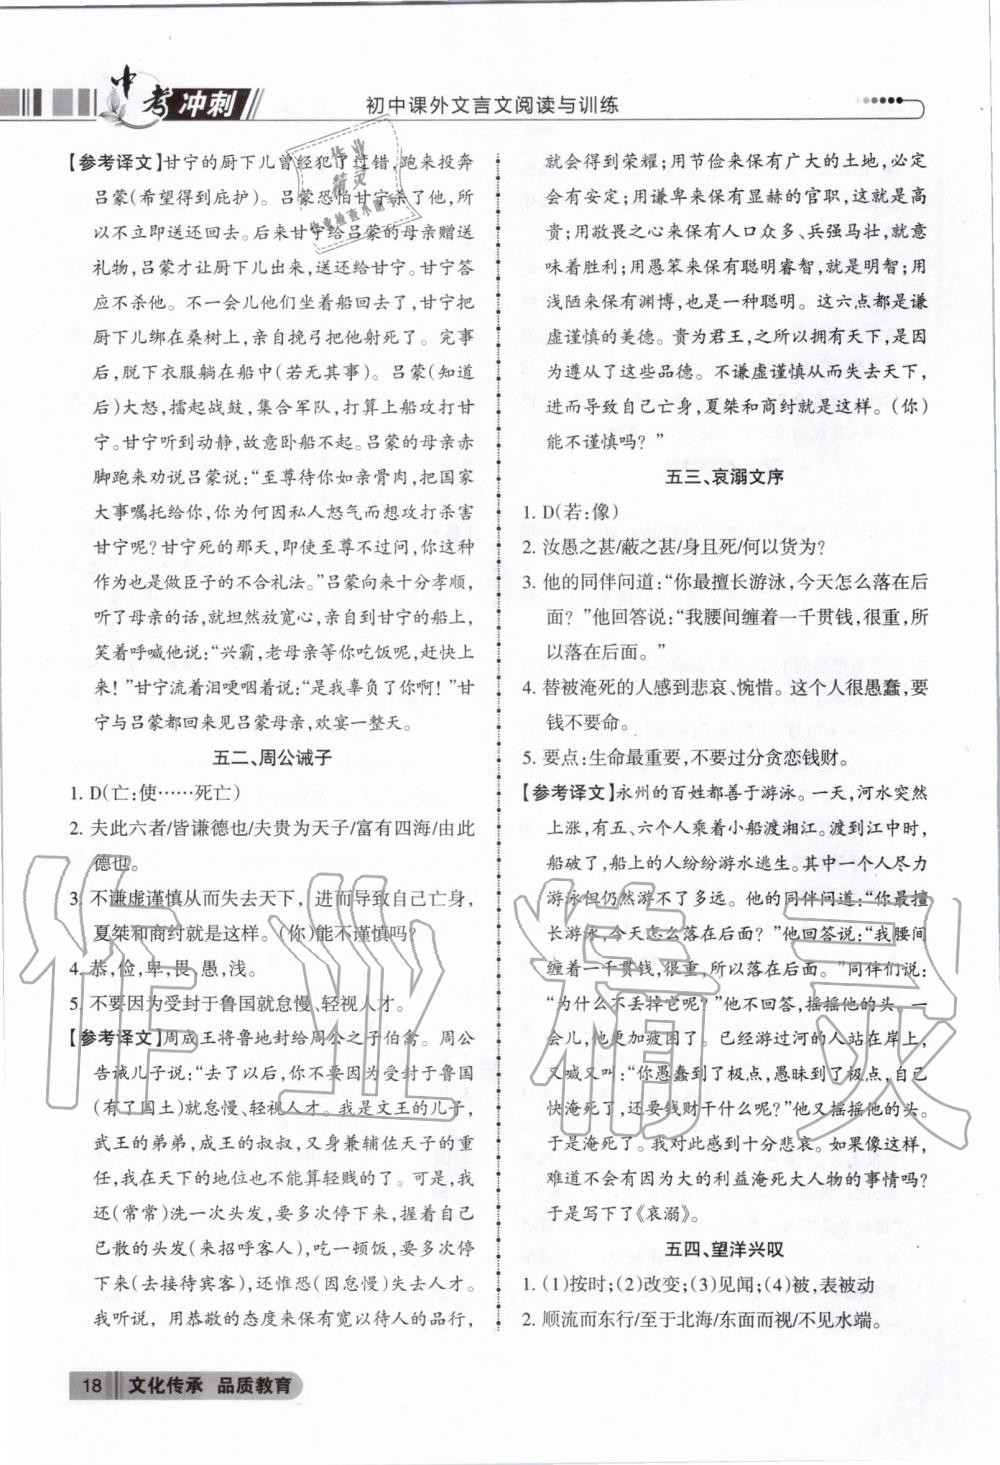 中考冲刺
初中课外文言文阅读与训练
【参考译文】甘宁的厨下儿曾经犯了过错,跑来投奔
吕蒙(希望得到庇护)。吕蒙恐怕甘宁杀了他,所
以不立即送还回去。后来甘宁给吕蒙的母亲赠送
礼物,吕蒙才让厨下儿出来,送还给甘宁。甘宁答
应不杀他。不一会儿他们坐着船回去了,甘宁把
厨下儿绑在桑树上,亲自挽弓把他射死了。完事
后,脱下衣服躺在船中(若无其事)。吕蒙(知道
后)大怒,擂起战鼓,集合军队,打算上船攻打甘
宁。甘宁听到动静,故意卧船不起。吕蒙的母亲赤
脚跑来劝说吕蒙说:“至尊待你如亲骨肉,把国家
大事嘱托给你,你为何因私人怒气而想要攻打杀害
甘宁呢?甘宁死的那天,即使至尊不过问,你这样
也是做臣子的不合礼法。”吕蒙向来十分孝顺,
听了母亲的话,就坦然放宽心,亲自到甘宁的船上,
笑着呼喊他说:“兴霸,老母亲等你吃饭呢,赶快上
来!”甘宁流着泪哽咽着说:“是我辜负了你啊!”甘
宁与吕蒙都回来见吕蒙母亲,欢宴一整天。
五二、周公诫子
1. D(亡:使……死亡)
2. 夫此六者/皆谦德也/夫贵为天子/富有四海/由此
德也。
3. 不谦虚谨慎从而失去天下,进而导致自己亡身,
夏桀和商纣就是这样。(你)能不谨慎吗?
4. 恭,俭,卑,畏,愚,浅。
5. 不要因为受封于鲁国就怠慢、轻视人才。
【参考译文】周成王将鲁地封给周公之子伯禽。周公
告诫儿子说:“去了以后,你不要因为受封于鲁国
(有了国土)就怠慢、轻视人才。我是文王的儿子,
武王的弟弟,成王的叔叔,又身兼辅佐天子的重
任,我在天下的地位也不能算轻的了。可是,我
还(常常)洗一次头发,要多次停下来,握着自己
已散的头发(来招呼客人),吃一顿饭,要多次停
下来(去接待宾客),还惟恐(因怠慢)失去人才。
我听说,用恭敬的态度来保有宽以待人的品行,
就会得到荣耀;用节俭来保有广大的土地,必定
会有安定;用谦卑来保有显赫的官职,这就是高
贵;用敬畏之心来保有人口众多、兵强马壮,就意
味着胜利;用愚笨来保有聪明睿智,就是明智;用
浅陋来保有渊博,也是一种聪明。这六点都是谦
虚谨慎的美德。贵为君王,之所以拥有天下,是因
为遵从了这些品德。不谦虚谨慎从而失去天下,
进而导致自己亡身,夏桀和商纣就是这样。(你)
能不谨慎吗?”
五三、哀溺文序
1. D(若:像)
2. 汝愚之甚/蔽之甚/身且死/何以货为?
3. 他的同伴问道:“你最擅长游泳,今天怎么落在后
面?”他回答说:“我腰间缠着一千贯钱,很重,所
以落在后面。”
4. 替被淹死的人感到悲哀、惋惜。这个人很愚蠢,要
钱不要命。
5. 要点:生命最重要,不要过分贪恋钱财。
【参考译文】永州的百姓都善于游泳。一天,河水突然
上涨,有五、六个人乘着小船渡湘江。渡到江中时,
船破了,船上的人纷纷游水逃生。其中一个人尽力
游泳但仍然游不了多远。他的同伴问道:“你最擅
长游泳,今天怎么落在后面?”他回答说:“我腰间
缠着一千贯钱,很重,所以落在后面。”同伴们说:
“为什么不丢掉它呢?”他不回答,摇摇他的头。一
会儿,他更加疲困了。已经游过河的人站在岸上,
又喊又叫:“你愚蠢到了极点,愚昧到了极点,自己
快淹死了,还要钱财干什么呢?”他又摇摇他的头。
于是淹死了。我对此感到十分悲哀。如果像这样,
难道不会有因为大的利益淹死大人物的事情吗?
于是写下了《哀溺》。
五四、望洋兴叹
1. (1)按时;(2)改变;(3)见闻;(4)被,表被动
2. 顺流而东行/至于北海/东面而视/不见水端。
18 文化传承 品质教育
作业精灵
作业
精灵
作业检查小能手